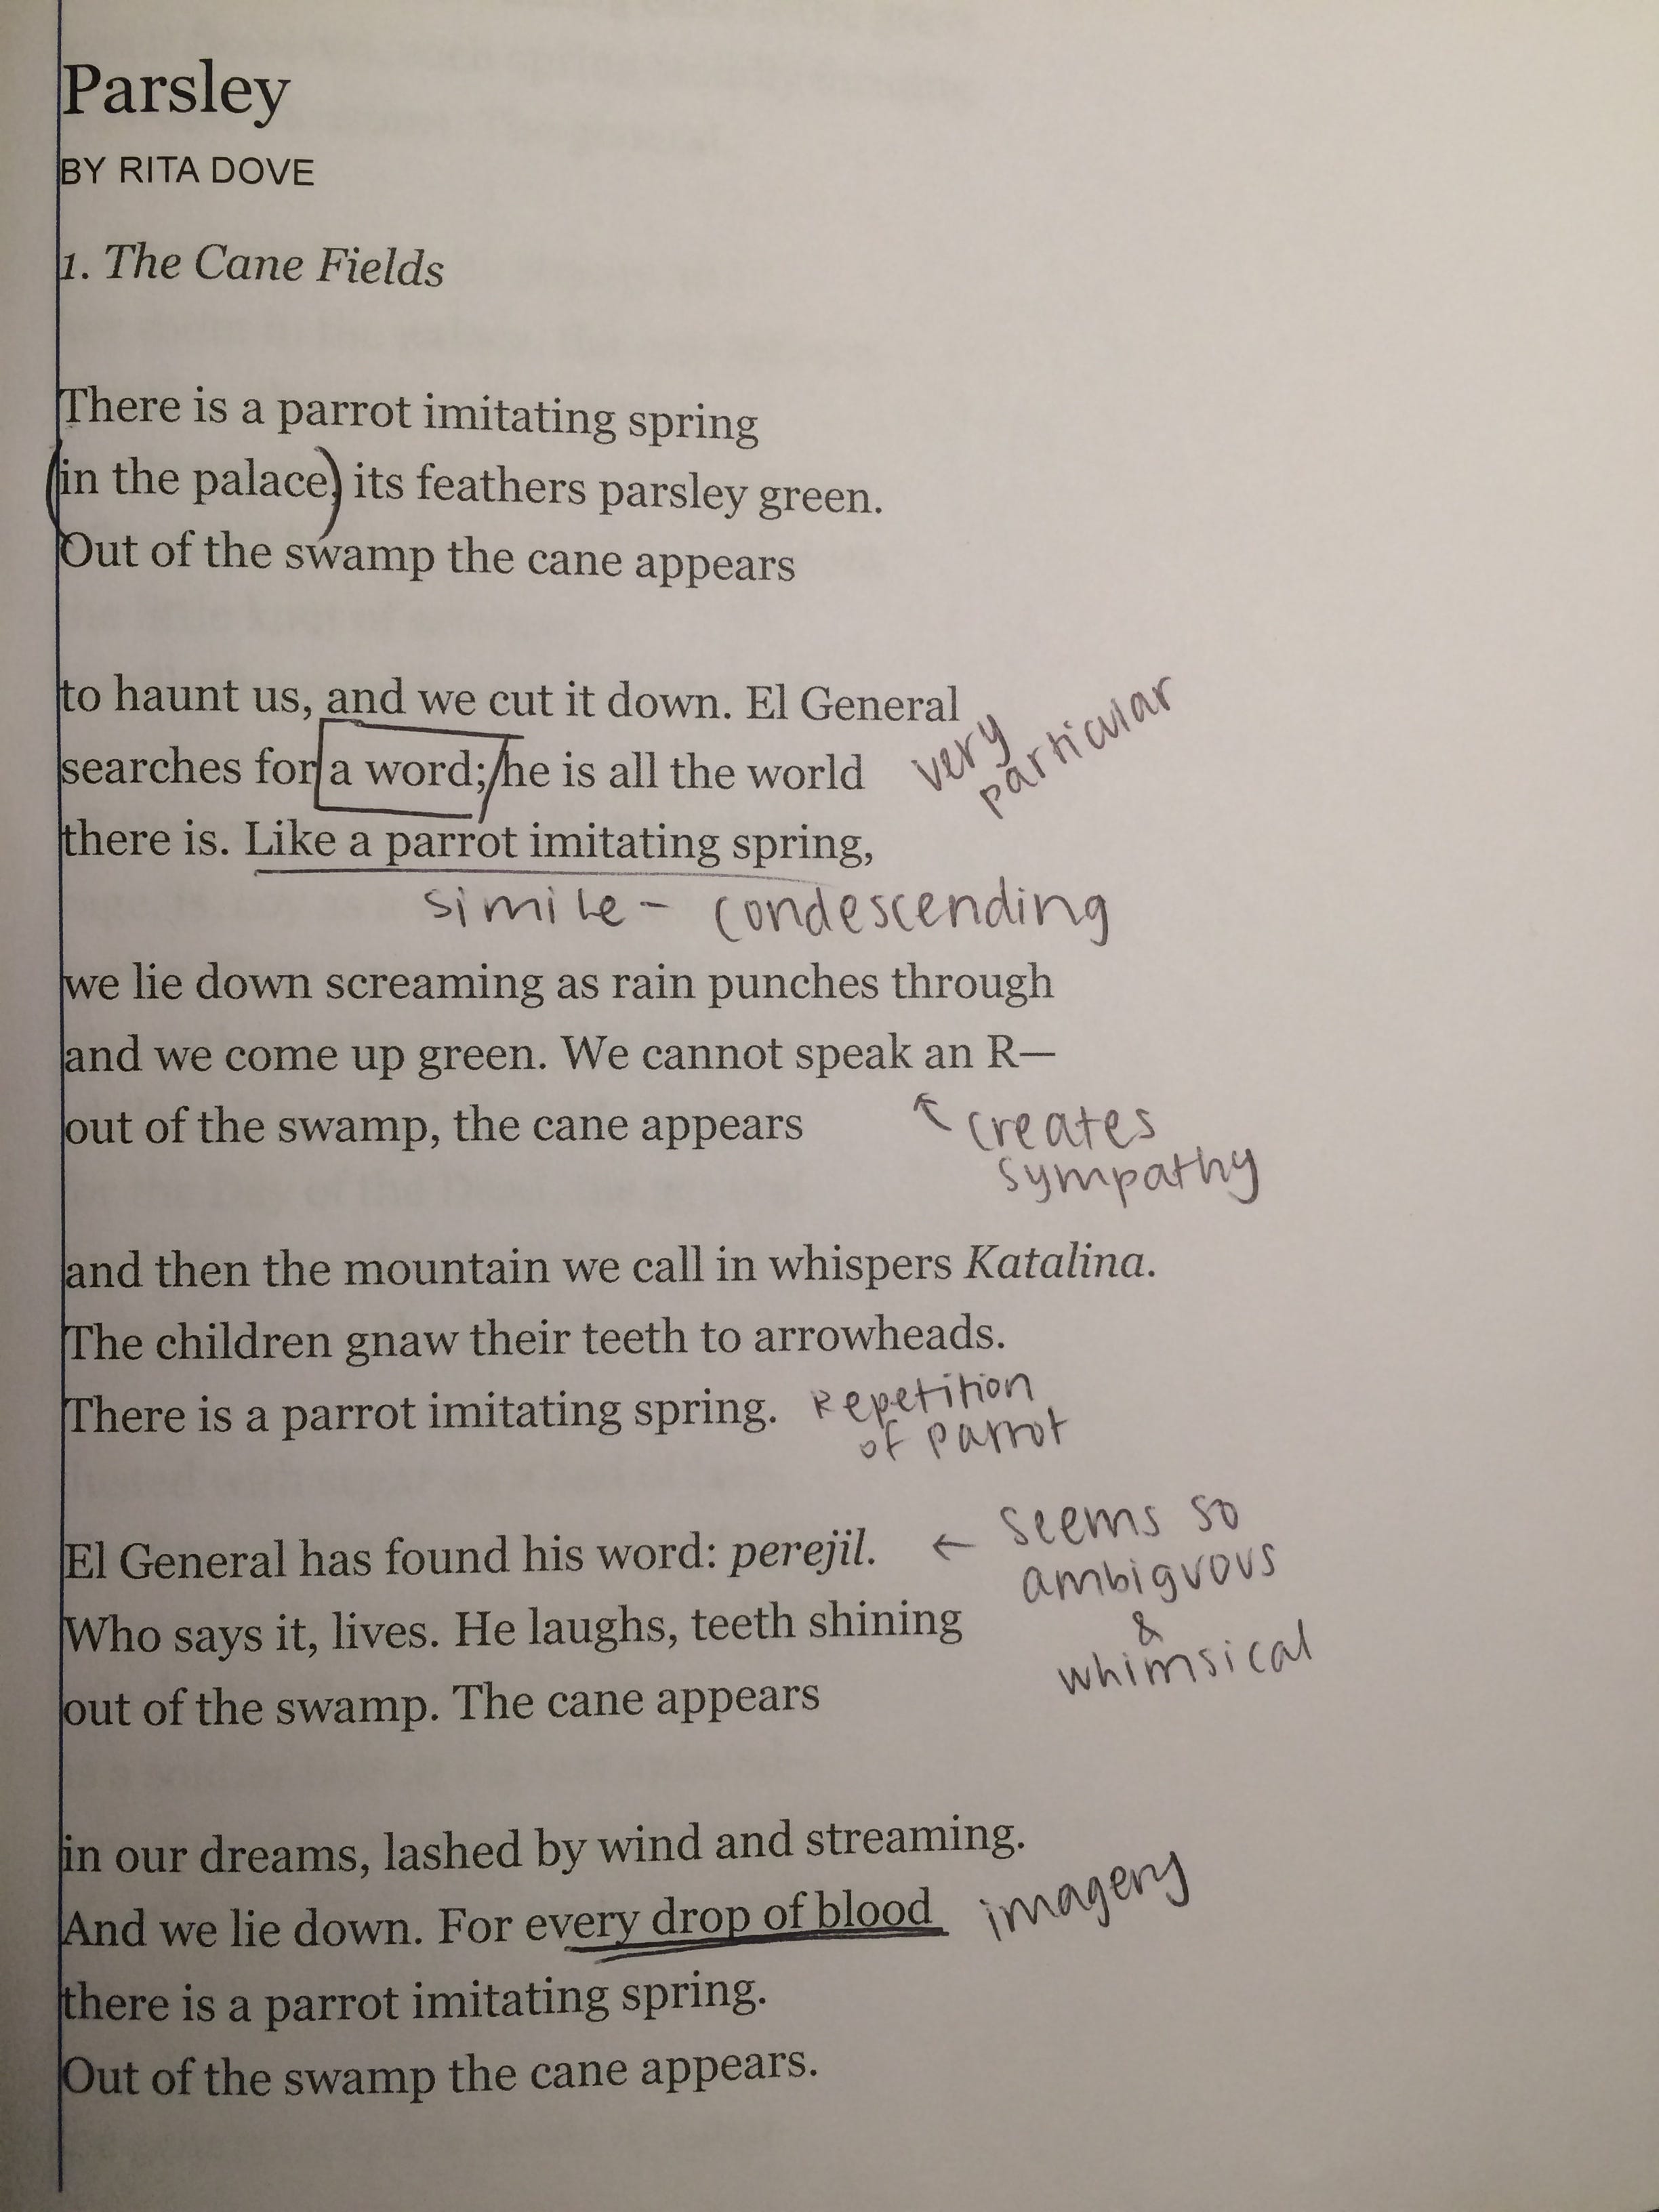 Parsley
BY RITA DOVE
1. The Cane Fields
There is a parrot imitating spring
(in the palace,) its feathers parsley green.
Out of the swamp the cane appears
to haunt us, and we cut it down. El General
searches for a word; he is all the world
very
particular
there is. Like a parrot imitating spring,
simile - condescending
we lie down screaming as rain punches through
and we come up green. We cannot speak an R—
out of the swamp, the cane appears
creates
sympathy
and then the mountain we call in whispers Katalina.
The children gnaw their teeth to arrowheads.
There is a parrot imitating spring.
Repetition
of parrot
El General has found his word: perejil.
← seems so
ambiguous
&
whimsical
Who says it, lives. He laughs, teeth shining
out of the swamp. The cane appears
in our dreams, lashed by wind and streaming.
And we lie down. For every drop of blood
imagery
there is a parrot imitating spring.
Out of the swamp the cane appears.